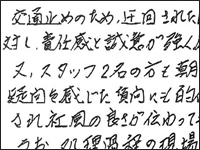 交通止めのため、迂回された
対し、責任感と誠意が強く
又、スタッフ2名の方も朝
疑問を感じた傾向にも的
され社風の良さが伝わって
うち、処理過程の現場